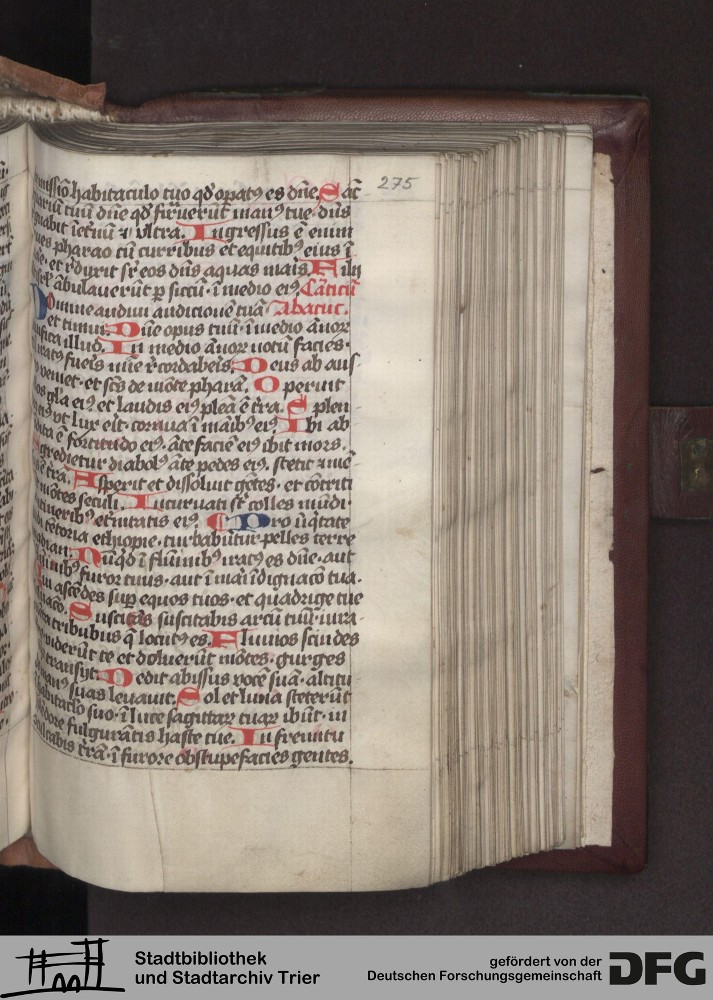 275
missiō habitaculo tuo qd' opat9 es dn̄e. Sac̄
ariū tuū dn̄e qd' firuerūt man9 tue. dn̄s
gnabit ī et'nū ⁊ vltra. Ingressus ē enim
ues pharao cū curribus et equitib9 eius ī
īe. et r'duxit sr̄ eos dn̄s aquas maīs. Filij
āt isrl' ābulauerūt p siccū. ī medio ei9. Cāticū
Domine audiui audicionē tuā Abacuc.
et timui. Dn̄e opus tuū. ī medio ānor
iuifica illud. In medio ānor notū facies.
ū irat9 fueīs mīe r'cordabeīs. Deus ab aus
o veniet. et sc̄s de mōte pharā. Operuit
los gl'a ei9. et laudis ei9 plēa ē t'ra. Splen
ei9 vt lux erit. cornua ī maīb9 ei9. Ibi ab
dita ē fortitudo ei9. āte faciē ei9 ibit mors.
gredietur diabol9 āte pedes ei9. stetit ⁊ mē
s' ē t'ra. Asperit et dissoluit gētes. et cōtriti
mōtes seculi. Incuruati sr̄ colles mūdi.
itineribus et'nitatis ei9. Pro īiqitate
di tētoria ethiopie. turbabūtur pelles terre
adian. Nūqd ī flūīnib9 irat9 es dn̄e. aut
flūīnib9 furor tuus. aut ī maī īdignac̄o tua.
Qui ascēdes sup equos tuos. et quadrige tue
luac̄o. Suscitās suscitabis arcū tuū. iura
ta tribubus q̄ locut9 es. Fluuios scindes
viderūt te et doluerūt mōtes. gurges
transijt. Dedit abyssus vocē suā. altitu
man9 suas leuauit. Sol et luna steterūt
habitacl'o suo. ī luce sagittar tuar ibūt. in
spledore fulgurātis haste tue. In fremitu
cōculcabis t'rā. ī furore obstupefacies gentes.
Stadtbibliothek
und Stadtarchiv Trier
gefördert von der
Deutschen Forschungsgemeinschaft
DFG